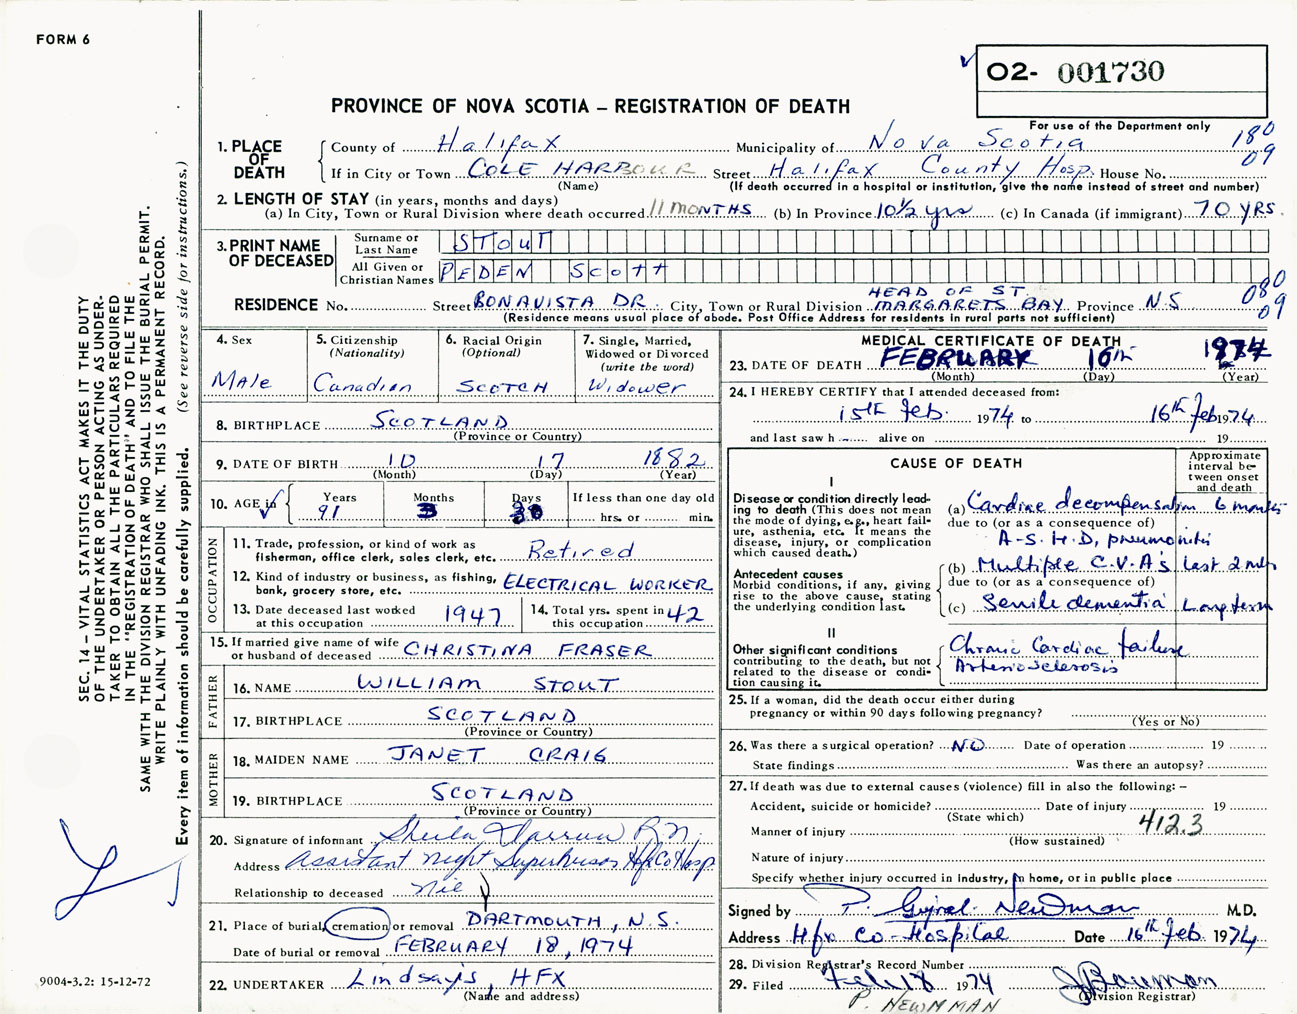 FORM 6
✓ 02- 001730
PROVINCE OF NOVA SCOTIA – REGISTRATION OF DEATH
For use of the Department only
180
09
1. PLACE OF DEATH
County of Halifax Municipality of Nova Scotia
If in City or Town COLE HARBOUR Street Halifax County Hosp. House No.
(Name) (If death occurred in a hospital or institution, give the name instead of street and number)
2. LENGTH OF STAY (in years, months and days)
(a) In City, Town or Rural Division where death occurred 11 MONTHS (b) In Province 10½ yrs (c) In Canada (if immigrant) 70 YRS.
3. PRINT NAME OF DECEASED
Surname or Last Name STOUT
All Given or Christian Names PEDEN SCOTT
080
09
RESIDENCE No. Street BONAVISTA DR. City, Town or Rural Division HEAD OF ST. MARGARETS BAY Province N.S.
(Residence means usual place of abode. Post Office Address for residents in rural parts not sufficient)
4. Sex
Male
5. Citizenship
(Nationality)
Canadian
6. Racial Origin
(Optional)
SCOTCH
7. Single, Married,
Widowed or Divorced
(write the word)
Widower
8. BIRTHPLACE SCOTLAND
(Province or Country)
9. DATE OF BIRTH 10 17 1882
(Month) (Day) (Year)
10. AGE in ✓
Years Months Days If less than one day old
91 3 30 hrs. or min.
OCCUPATION
11. Trade, profession, or kind of work as
fisherman, office clerk, sales clerk, etc. Retired
12. Kind of industry or business, as fishing,
bank, grocery store, etc. ELECTRICAL WORKER
13. Date deceased last worked
at this occupation 1947
14. Total yrs. spent in
this occupation 42
15. If married give name of wife
or husband of deceased CHRISTINA FRASER
FATHER
16. NAME WILLIAM STOUT
17. BIRTHPLACE SCOTLAND
(Province or Country)
MOTHER
18. MAIDEN NAME JANET CRAIG
19. BIRTHPLACE SCOTLAND
(Province or Country)
20. Signature of informant Sheila R.N.
Address Assistant Night Supervisor Hfx Co Hosp.
Relationship to deceased Nil
21. Place of burial, cremation or removal DARTMOUTH, N.S.
Date of burial or removal FEBRUARY 18, 1974
22. UNDERTAKER Lindsay's, HFX
(Name and address)
MEDICAL CERTIFICATE OF DEATH
23. DATE OF DEATH FEBRUARY 16th 1974
(Month) (Day) (Year)
24. I HEREBY CERTIFY that I attended deceased from:
15th feb. 1974 to 16th feb 1974
and last saw h alive on 19
CAUSE OF DEATH
Approximate
interval be-
tween onset
and death
I
Disease or condition directly lead-
ing to death (This does not mean
the mode of dying, e.g., heart fail-
ure, asthenia, etc. It means the
disease, injury, or complication
which caused death.)
(a) Cardiac decompensation 6 months
due to (or as a consequence of)
A-S.H.D, pneumonitis
Antecedent causes
Morbid conditions, if any, giving
rise to the above cause, stating
the underlying condition last.
(b) Multiple C.V.A's last 2 mths
due to (or as a consequence of)
(c) Senile dementia Long term
II
Other significant conditions
contributing to the death, but not
related to the disease or condi-
tion causing it.
Chronic Cardiac failure
Arteriosclerosis
25. If a woman, did the death occur either during
pregnancy or within 90 days following pregnancy?
(Yes or No)
26. Was there a surgical operation? NO Date of operation 19
State findings Was there an autopsy?
27. If death was due to external causes (violence) fill in also the following: –
Accident, suicide or homicide? Date of injury 19
(State which)
Manner of injury 412.3
(How sustained)
Nature of injury
Specify whether injury occurred in industry, in home, or in public place
Signed by P. Gujral Newman M.D.
Address Hfx Co-Hospital Date 16th feb. 1974
28. Division Registrar's Record Number
29. Filed Feb 18 1974 J Bauman
(Division Registrar)
P. NEWMMAN
SEC. 14 – VITAL STATISTICS ACT MAKES IT THE DUTY
OF THE UNDERTAKER OR PERSON ACTING AS UNDER-
TAKER TO OBTAIN ALL THE PARTICULARS REQUIRED
IN THE "REGISTRATION OF DEATH" AND TO FILE THE
SAME WITH THE DIVISION REGISTRAR WHO SHALL ISSUE THE BURIAL PERMIT.
WRITE PLAINLY WITH UNFADING INK. THIS IS A PERMANENT RECORD.
Every item of information should be carefully supplied. (See reverse side for instructions.)
9004-3.2: 15-12-72